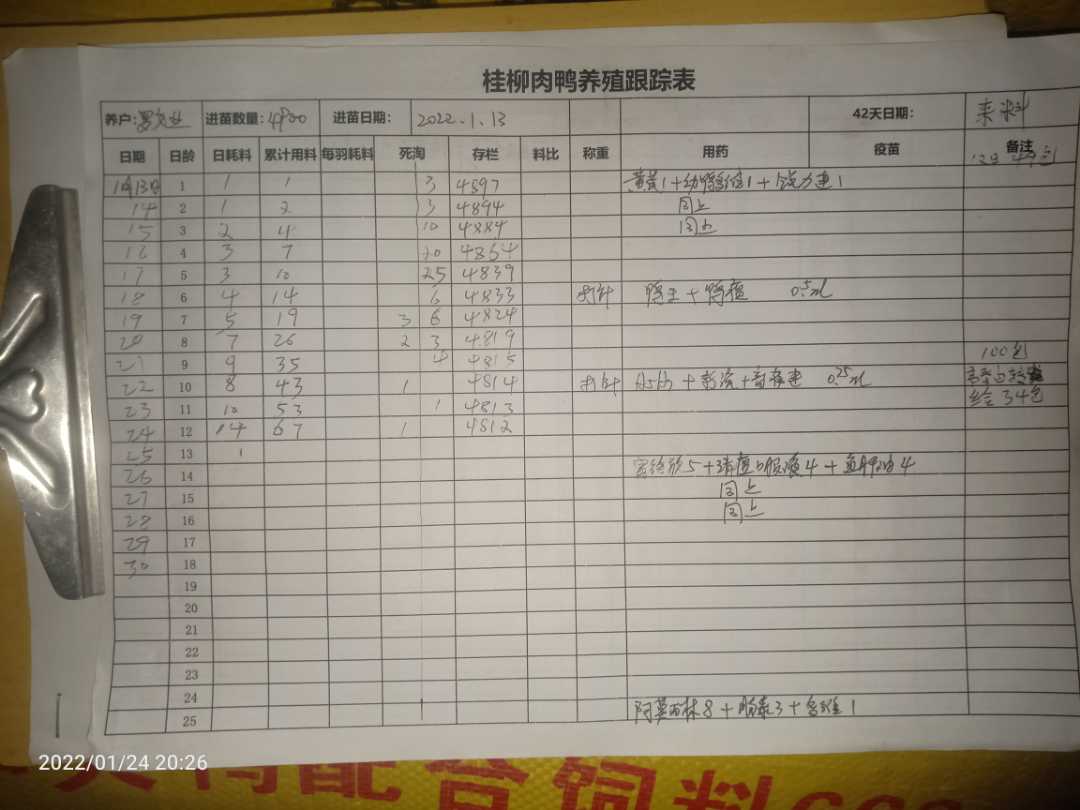 桂柳肉鸭养殖跟踪表
养户: 进苗数量:4900 进苗日期: 2022.1.13 42天日期: 来料
日期 日龄 日耗料 累计用料 每羽耗料 死淘 存栏 料比 称重 用药 疫苗 备注
1月13日 1 1 1 3 4897 黄芪1+ 1+ 1
14 2 1 2 3 4894 同上
15 3 2 4 10 4884 同上
16 4 3 7 20 4864
17 5 3 10 25 4839
18 6 4 14 6 4833 打针 鸭 + 鸭 0.5ml
19 7 5 19 3 6 4824
20 8 7 26 2 3 4819
21 9 9 35 4 4815 100包
22 10 8 43 1 4814 打针 + + 0.25ml
23 11 10 53 1 4813 34包
24 12 14 67 1 4812
25 13 1
26 14 5+ 口服液4+鱼肝油4
27 15 同上
28 16 同上
29 17
30 18
19
20
21
22
23
24 1 阿莫西林8+ 3+多维1
25
2022/01/24 20:26
配合饲料